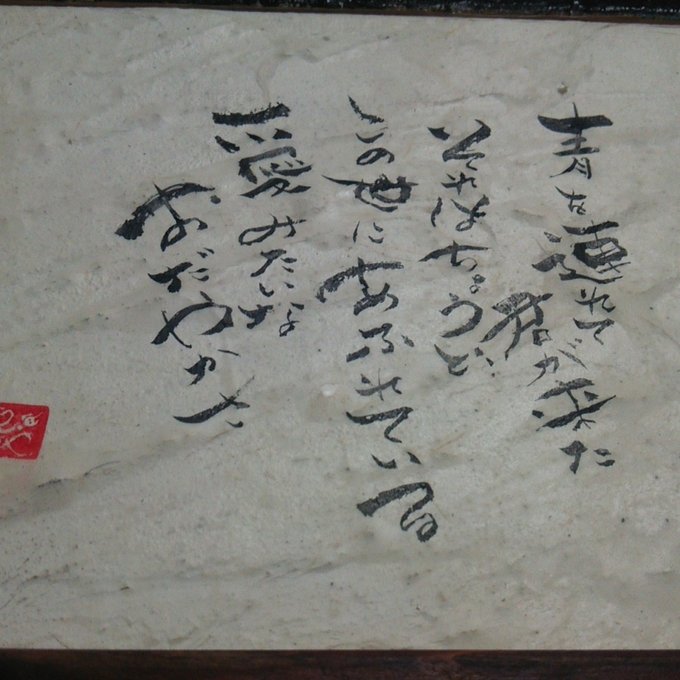 青を連れて
が来た
それはちょうど
この世にあふれている
愛みたいな
おだやかさ